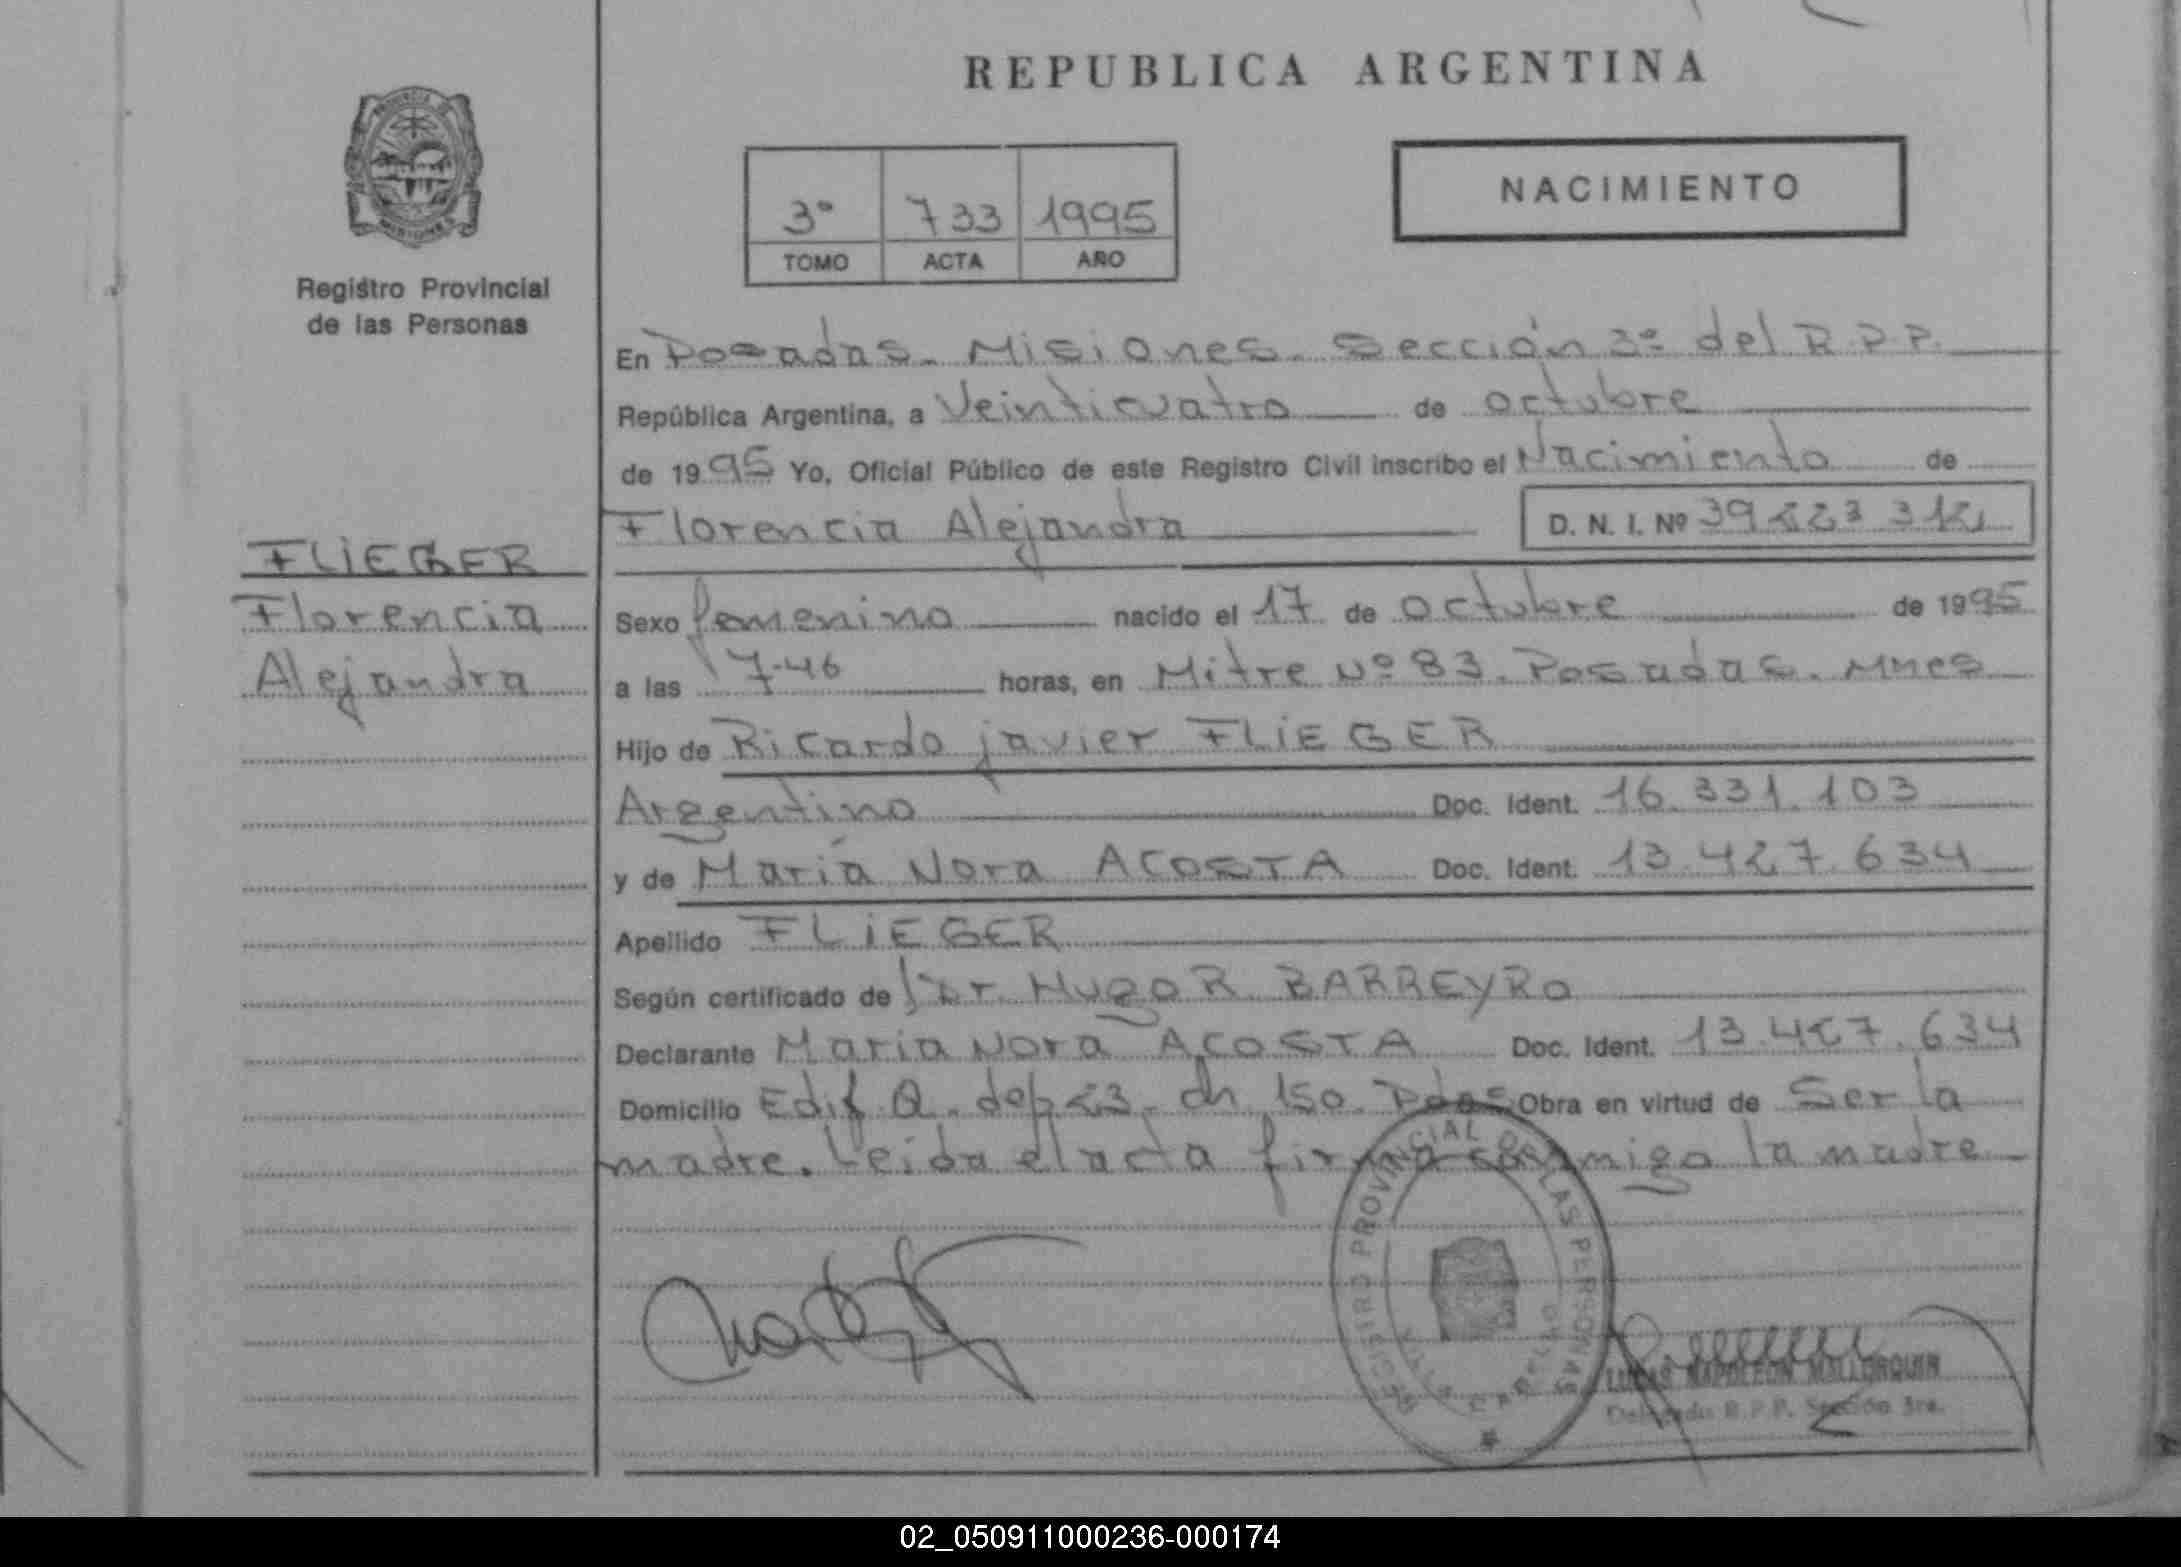 REPUBLICA ARGENTINA
PROVINCIA DE
MISIONES
Registro Provincial
de las Personas
3º 733 1995
TOMO ACTA AÑO
NACIMIENTO
En Posadas. Misiones. Sección 3º del R.P.P.
República Argentina, a Veinticuatro de octubre
de 1995 Yo, Oficial Público de este Registro Civil inscribo el Nacimiento de
Florencia Alejandra D. N. I. Nº
FLiEGER
Florencia
Alejandra
Sexo femenino nacido el 17 de octubre de 1995
a las 7-46 horas, en Mitre Nº 83. Posadas. Mnes
Hijo de Ricardo javier FLiEGER
Argentino Doc. Ident. 16.331.103
y de María Nora ACOSTA Doc. Ident. 13.427.634
Apellido FLiEGER
Según certificado de Dr. Hugo R. BARREYRO
Declarante Maria Nora ACOSTA Doc. Ident. 13.427.634
Domicilio Edif Q. dep 23. ch 150. Pdas Obra en virtud de Ser la
madre. Leida el acta firma conmigo la madre
REGISTRO PROVINCIAL DE LAS PERSONAS
VILLA CABELLO
LUCAS NAPOLEON MALLORQUIN
Delegado R.P.P. Sección 3ra.
02_050911000236-000174